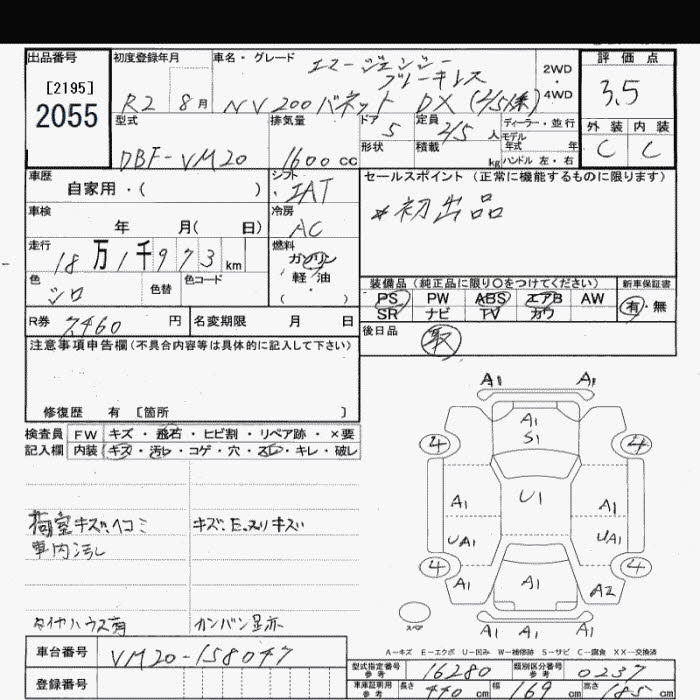 出品番号
[2195]
2055
初度登録年月
R2 8月
車名・グレード
エマージェンシー
ブレーキレス
NV200バネット DX (2/5人乗)
2WD
・
4WD
評価点
3.5
外装 内装
C C
型式
DBF-VM20
排気量
1600cc
ドア
5
形状
定員
2/5人
積載
kg
ディーラー・並行
モデル
年式 年
ハンドル 左・右
車歴
自家用・( )
シフト
IAT
セールスポイント (正常に機能するものに限ります)
*初出品
車検
年 月( 日)
冷房
AC
走行
18万1千973km
燃料
ガソリン
軽・油
( ・ )
色
シロ
色替
色コード
装備品(純正品に限り〇をつけてください)
PS PW ABS エアB AW
SR ナビ TV カワ
新車保証書
有・無
R券 7,460円
名変期限 月 日
後日品
取
注意事項申告欄(不具合内容等は具体的に記入して下さい)
修復歴 有 [箇所 ]
検査員
記入欄
FW キズ・飛石・ヒビ割・リペア跡・×要
内装 キズ・汚レ・コゲ・穴・スレ・キレ・破レ
荷室キズ、ヘコミ
キズ、E、ヌリキズ
車内汚レ
タイヤハウス有
カンバン跡
A1 A1
A1
S1
4 4
A1 U1 A1
UA1 UA1
4 4
A1 A1 A2
A1 A1 A1
スペア
A-キズ E-エクボ U-凹み W-補修跡 S-サビ C-腐食 XX-交換済
車台番号 VM20-158047
登録番号
型式指定番号
参考
16280
類別区分番号
参考
0237
車庫証明用
参考
長さ 440cm 幅 169cm 高さ 185cm